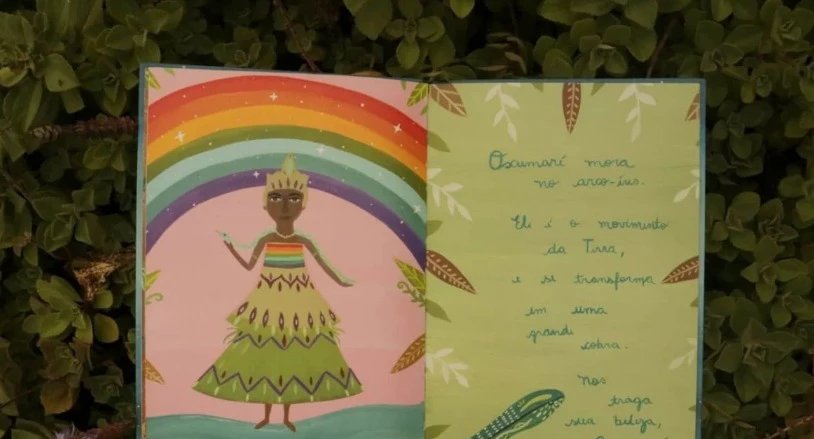 Oxumaré mora
no arco-íris.
Ele é o movimento
da Terra,
e se transforma
em uma
grande
cobra.
Nos
traga
sua beleza,